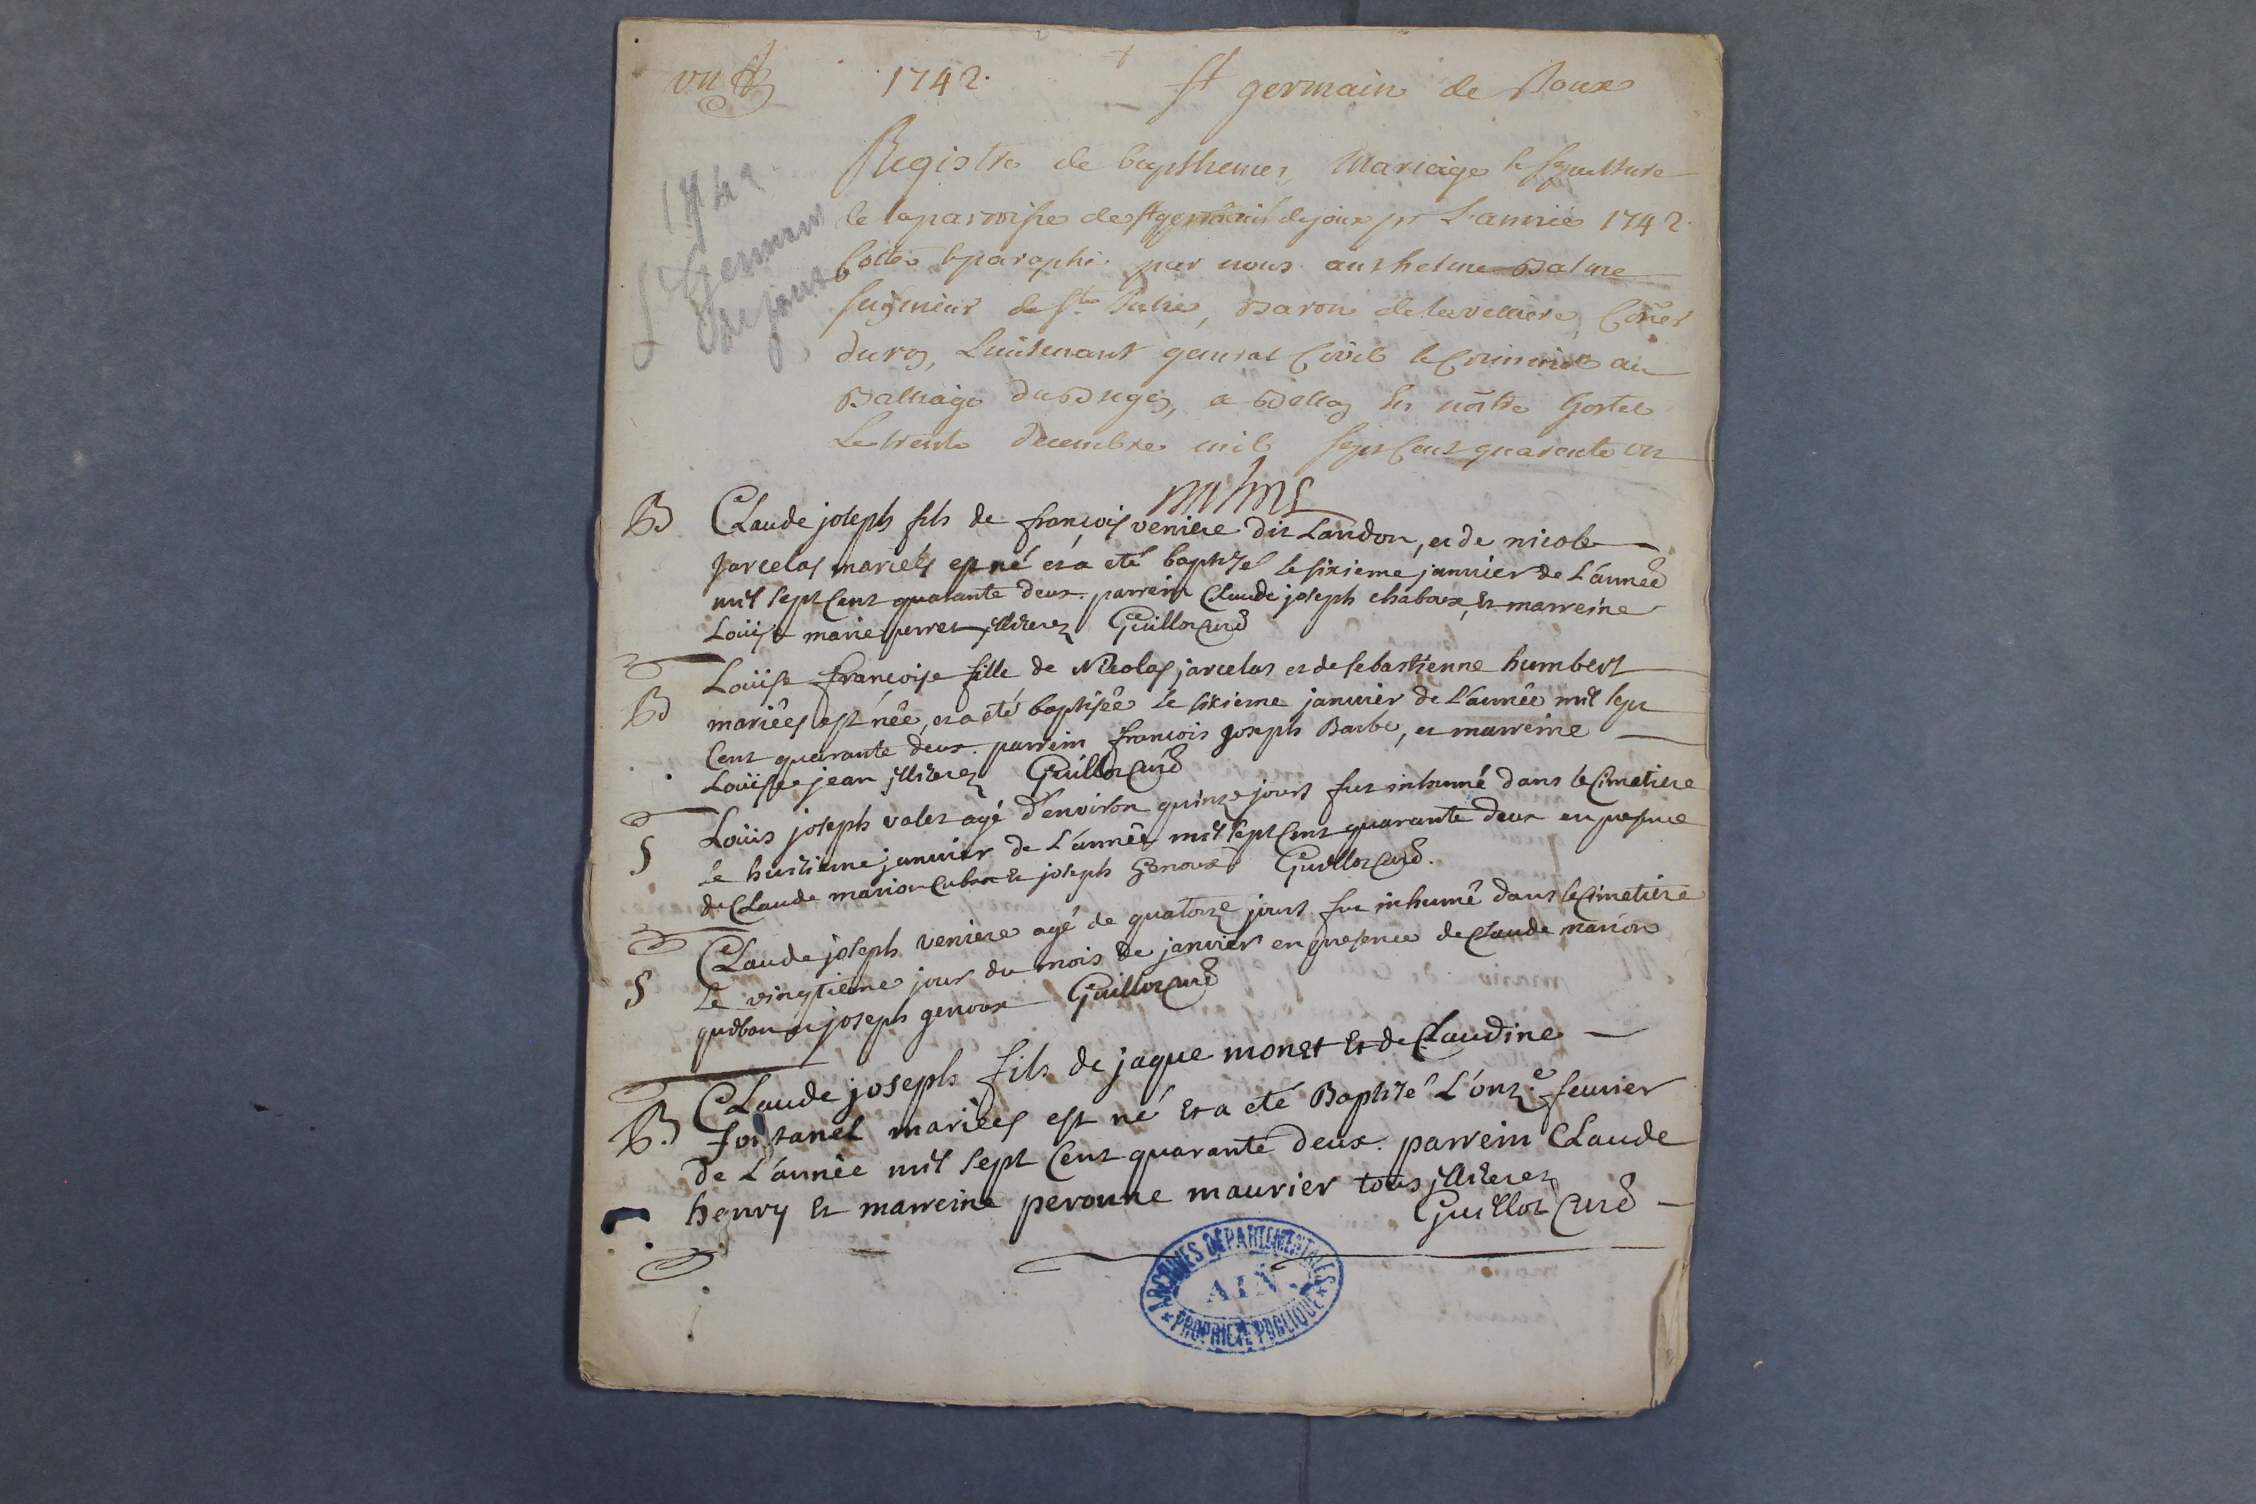 un
1742.
st germain de Joux
1742
St Germain
de joux
Registre de bapthemes, Mariage & sepulture
de la parroisse de st germain de joux pr L'année 1742.
Cotté & paraphé par nous anthelme Balme
seigneur de Ste Julie, Baron de la velliere, Coner
du roy, Lieutenant general Civil & Criminel au
Balliage du Bugey, a Belley en nostre hostel
Le trente decembre mil sept Cent quarente un
B
Claude joseph fils de françois veniere dit Landon, et de nicole
jarcelas mariés est né et a eté baptisé le sixieme janvier de L'année
mil sept Cent quarante deux. parrein Claude joseph chaboux, Et marreine
Loüise marie perret illiterez Guillot Curé
B
Loüise françoise fille de Nicolas jarcelas et de sebastienne humbert
mariées est née, et a eté baptisée le sixieme janvier de L'année mil sept
Cent quarante deux. parrein françois joseph Barbe, et marreine
Loüisse jean illiterez Guillot Curé
S
Loüis joseph valet agé d'environ quinze jours fut inhumé dans le Cimetiere
le huitieme janvier de L'année mil sept Cent quarante deux en presence
de Claude marion Cuban Et joseph Genoux Guillot Curé.
S
Claude joseph veniere agé de quatorze jours fut inhumé dans le Cimetiere
Le vingtieme jour du mois de janvier en presence de Claude marion
et joseph genoux Guillot Curé
B.
Claude joseph fils de jaque monet Et de Claudine
fontanel mariées est né Et a eté Baptisé L'onze. fevrier
de L'année mil sept Cent quarante deux. parrein Claude
henry Et marreine peronne maurier tous illiterez
Guillot Curé
ARCHIVES DEPARTEMENTALES
AIN
PROPRIETE PUBLIQUE